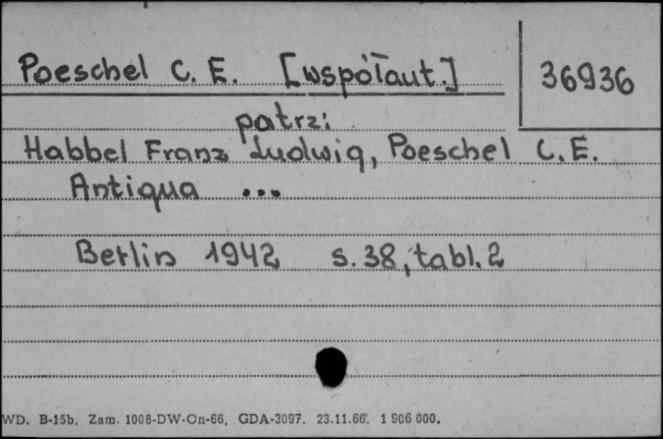 Poeschel C. E. [współaut.]
36936
patrz:
Habbel Franz Ludwig, Poeschel C. E.
Antiqua ...
Berlin 1942 s. 38, tabl. 2
WD. B-15b. Zam. 1008-DW-On-66, GDA-3097. 23.11.66. 1 906 000.